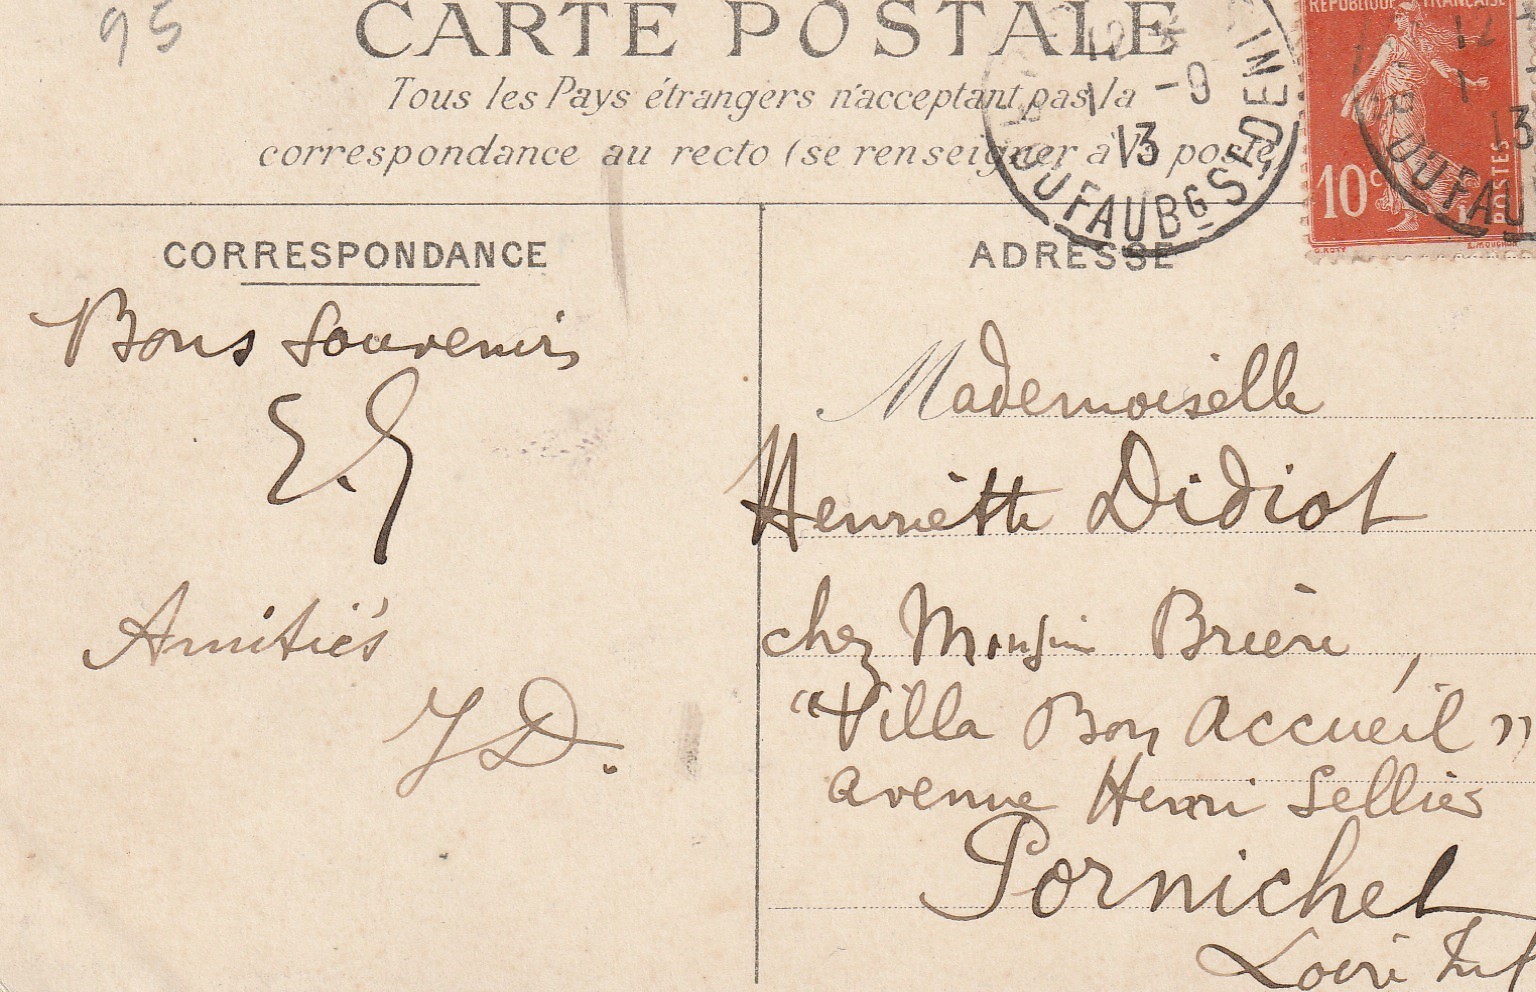 95
CARTE POSTALE
Tous les Pays étrangers n'acceptant pas la
correspondance au recto (se renseigner à la poste)
RÉPUBLIQUE FRANÇAISE
10c
POSTES
12
1 -9
13
DU FAUBG ST DENI
12
1
13
DU FAU
CORRESPONDANCE
Bons souvenirs
Amitiés
J D.
ADRESSE
Mademoiselle
Henriette Didiot
chez Monsieur Brière,
"Villa Bon Accueil"
avenue Henri Sellier
Pornichet
Loire Inf